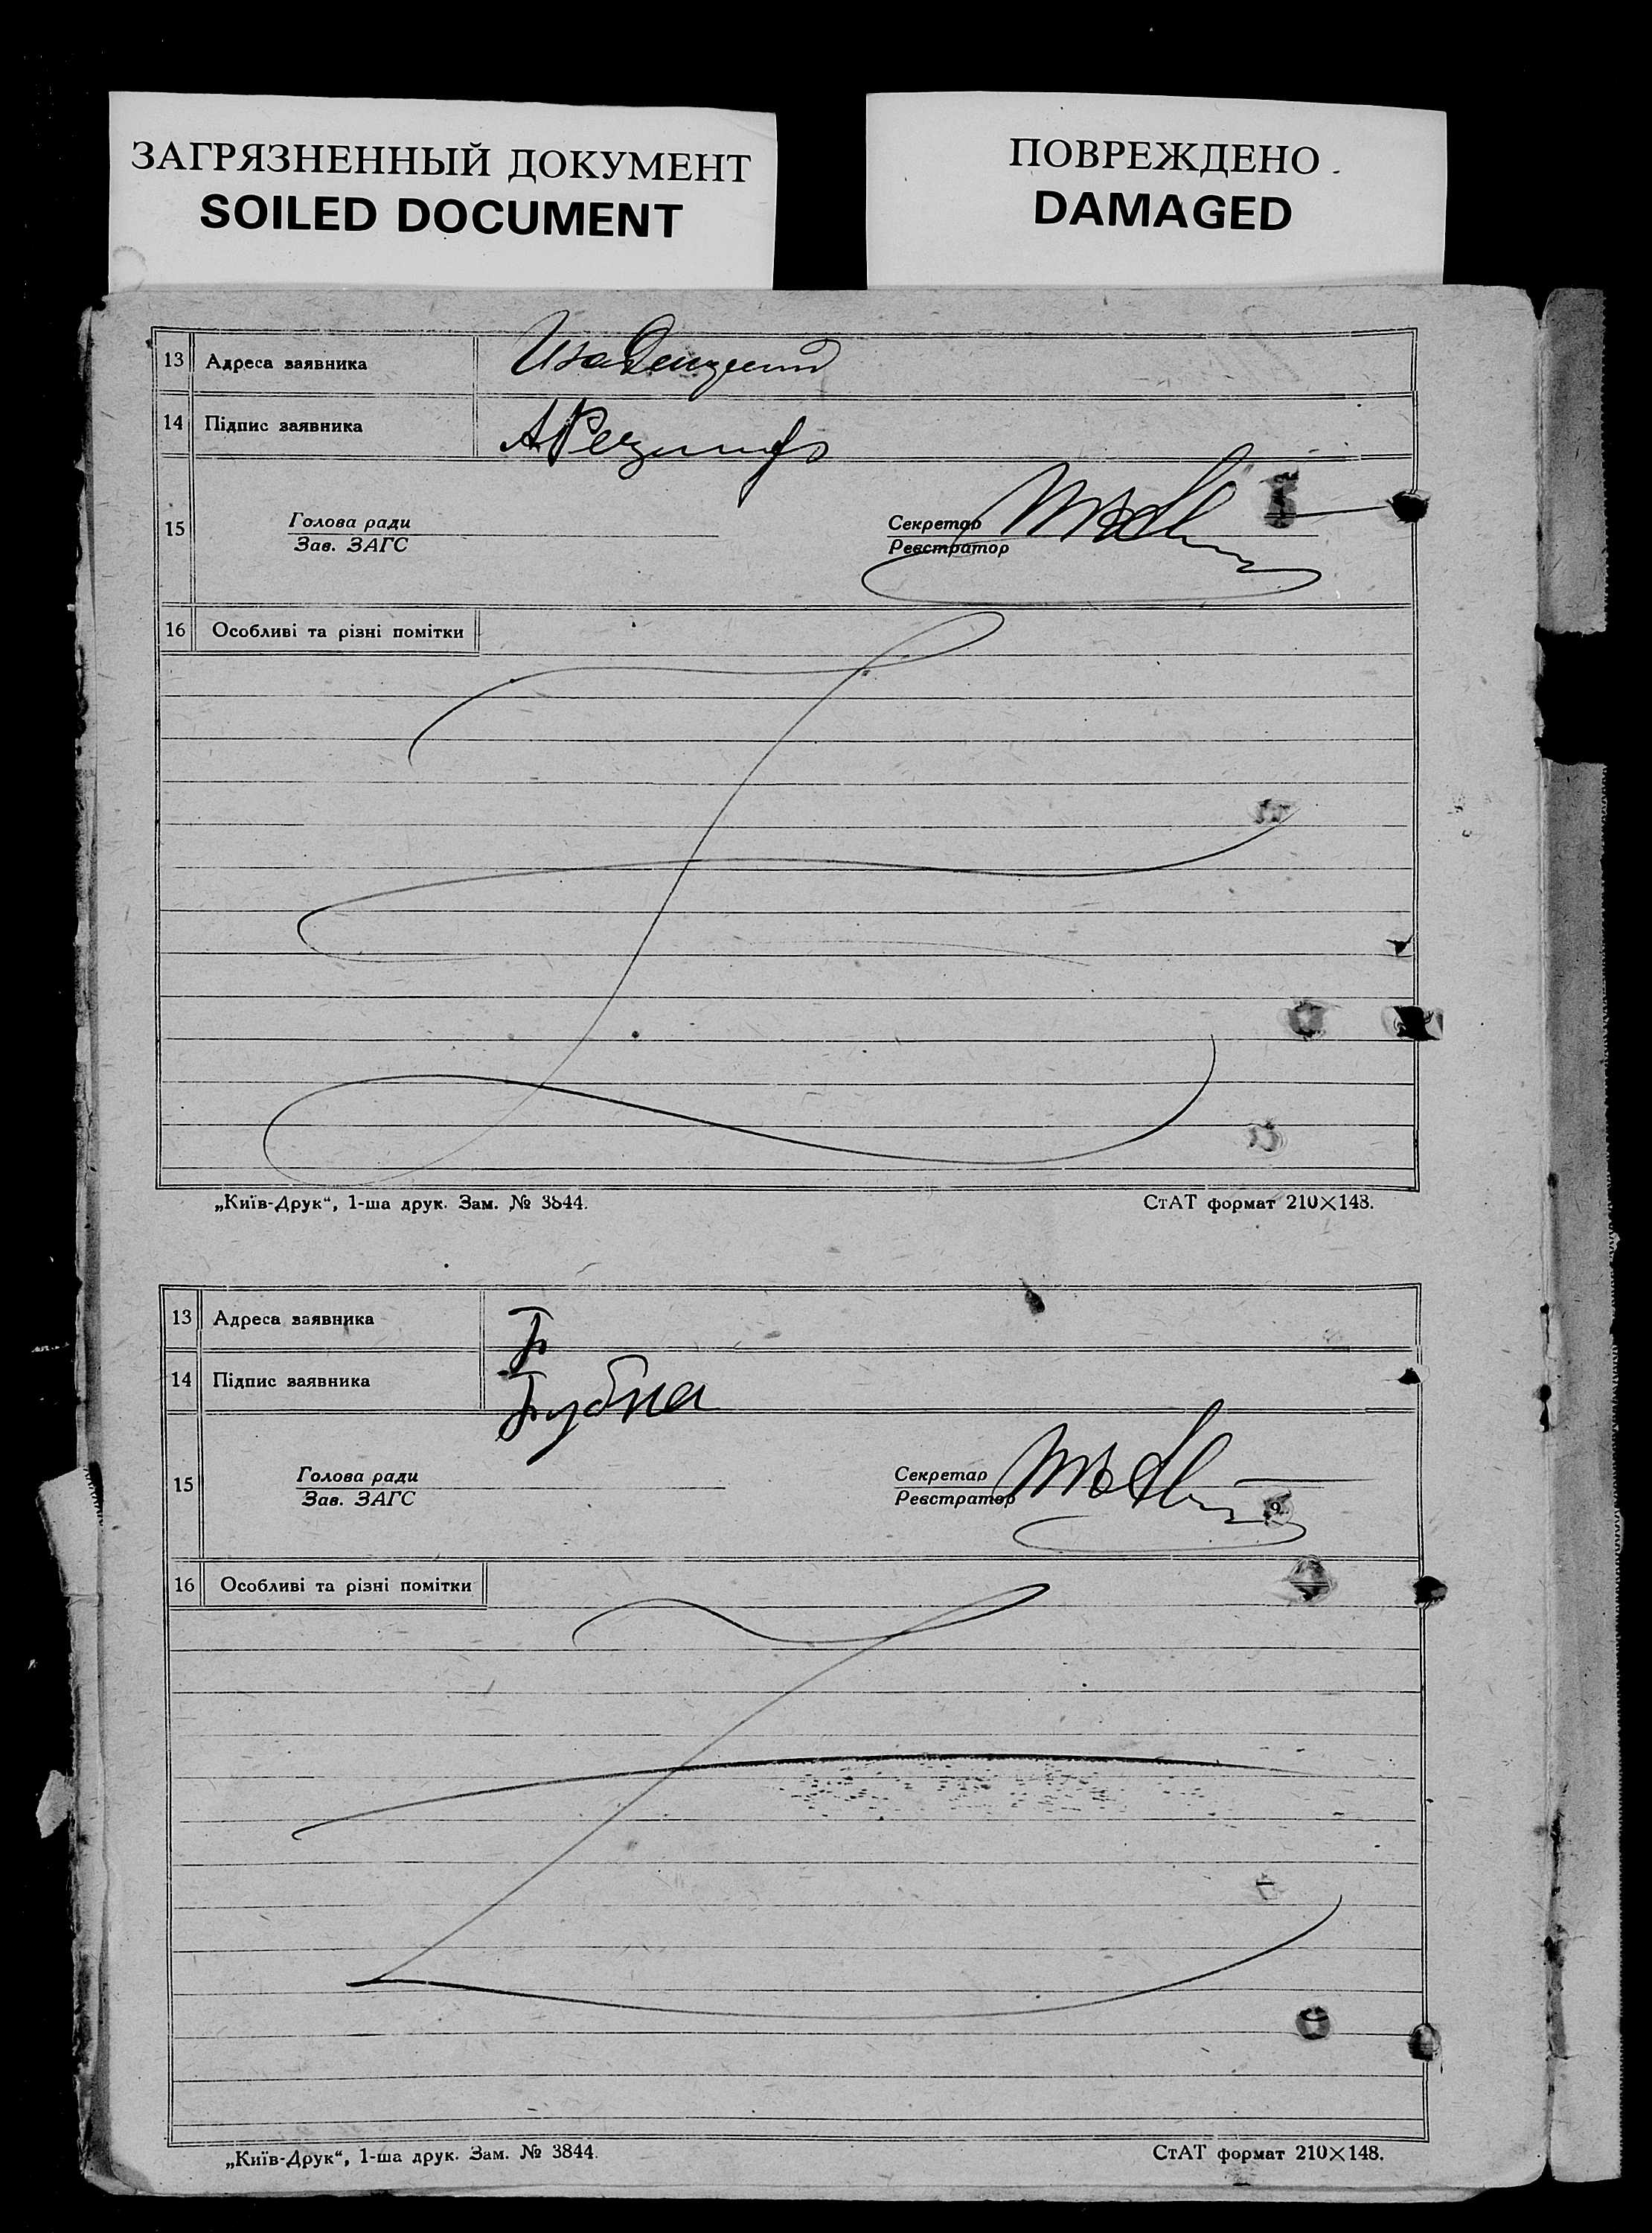 ЗАГРЯЗНЕННЫЙ ДОКУМЕНТ
SOILED DOCUMENT
ПОВРЕЖДЕНО
DAMAGED
13 Адреса заявника
14 Підпис заявника
15 Голова ради
Зав. ЗАГС
Секретар
Реєстратор
16 Особливі та різні помітки
„Київ-Друк“, 1-ша друк. Зам. № 3844.
СтАТ формат 210×148.
13 Адреса заявника
14 Підпис заявника
15 Голова ради
Зав. ЗАГС
Секретар
Реєстратор
16 Особливі та різні помітки
„Київ-Друк“, 1-ша друк. Зам. № 3844.
СтАТ формат 210×148.